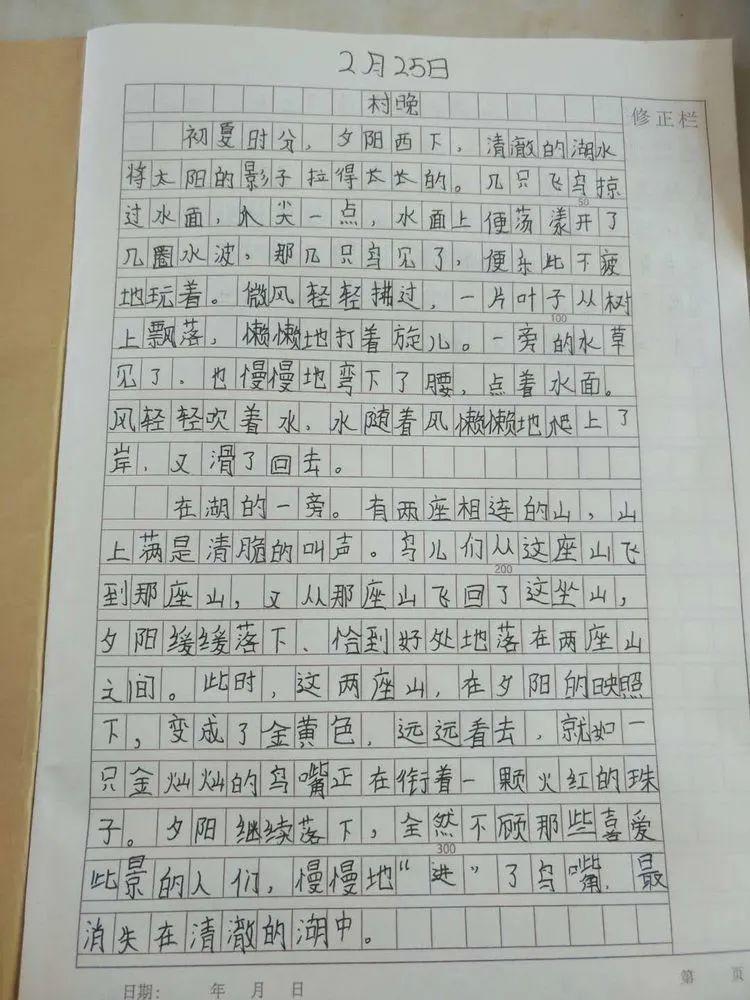 2月25日
村晚
修正栏
初夏时分，夕阳西下，清澈的湖水
将太阳的影子拉得长长的。几只飞鸟掠
50
过水面，爪尖一点，水面上便荡漾开了
几圈水波，那几只鸟见了，便乐此不疲
地玩着。微风轻轻拂过，一片叶子从树
100
上飘落，懒懒地打着旋儿。一旁的水草
见了，也慢慢地弯下了腰，点着水面。
风轻轻吹着水，水随着风懒懒地爬上了
岸，又滑了回去。
在湖的一旁。有两座相连的山，山
上满是清脆的叫声。鸟儿们从这座山飞
200
到那座山，又从那座山飞回了这坐山，
夕阳缓缓落下、恰到好处地落在两座山
之间。此时，这两座山，在夕阳的映照
下，变成了金黄色，远远看去，就如一
只金灿灿的鸟嘴正在衔着一颗火红的珠
子。夕阳继续落下，全然不顾那些喜爱
300
此景的人们，慢慢地“进”了鸟嘴，最
消失在清澈的湖中。
日期： 年 月 日
第 页